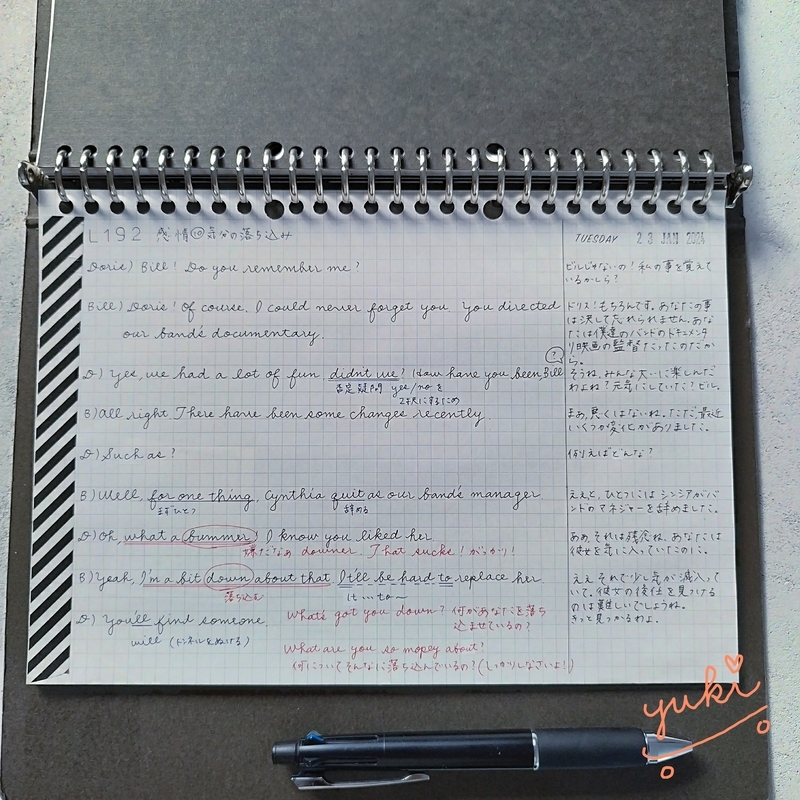 L192 感情⑩気分の落ち込み
TUESDAY 23 JAN 2024
Doris) Bill! Do you remember me?
ビルじゃないの!私の事を覚えて
いるかしら?
Bill) Doris! Of course. I could never forget you. You directed
our band's documentary.
ドリス!もちろんです。あなたの事
は決して忘れられません。あな
たは僕達のバンドのドキュメンタ
リ映画の監督だったのだか
ら。
D) Yes, we had a lot of fun, didn't we? How have you been, Bill
?
否定疑問 yes/noを
2択にするため
そうね、みんな大いに楽しんだ
わよね?元気にしていた?ビル。
B) All right. There have been some changes recently.
まあ、悪くはないね。ただ、最近
いくつか変化がありました。
D) Such as?
例えばどんな?
B) Well, for one thing, Cynthia quit as our band's manager.
まずひとつ
辞める
ええと、ひとつには シンシアがバ
ンドのマネジャーを辞めました。
D) Oh, what a bummer! I know you liked her.
嫌だなぁ downer. That sucks! がっかり!
ああ、それは残念ね。あなたは
彼女を気に入っていたのに。
B) Yeah, I'm a bit down about that. It'll be hard to replace her.
落ち込む
it…to~
ええ それで少し気が滅入って
いて。彼女の後任を見つける
のは難しいでしょうね。
D) You'll find someone.
will (トンネルをぬける)
きっと見つかるわよ。
What's got you down? 何があなたを落ち
込ませているの?
What are you so mopey about?
何についてそんなに落ち込んでいるの?(しっかりしなさいよ!)
yuki